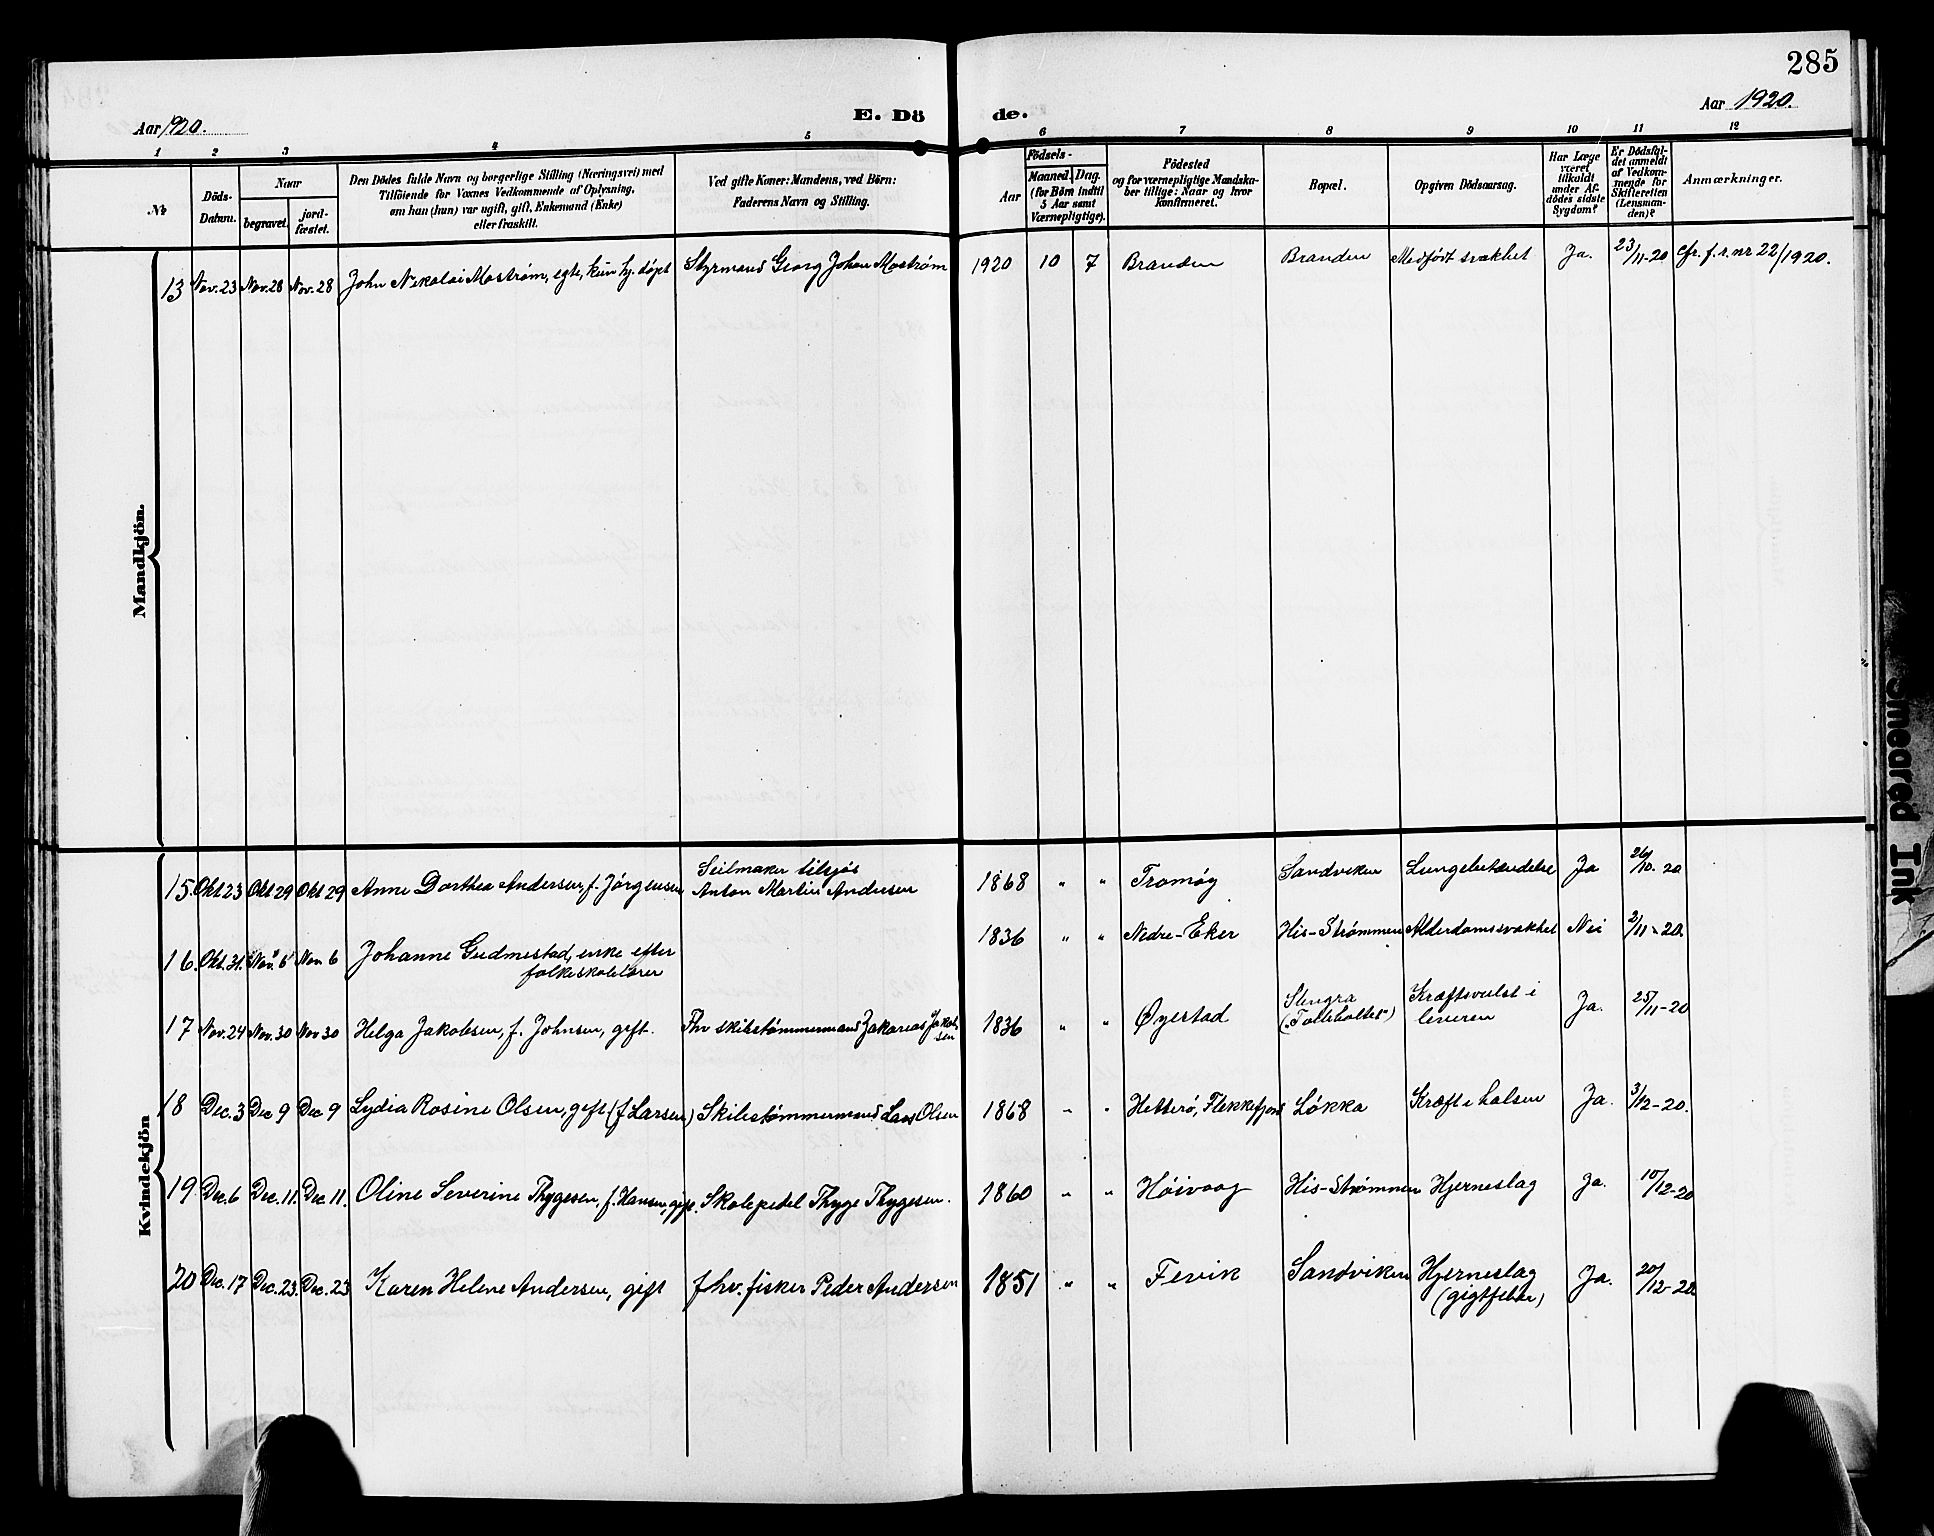 285
Aar 1920.
E. Dö de.
Aar 1920.
1 2 3 4 5 6 7 8 9 10 11 12
№ Döds-Datum. Naar begravet. jord-fæstet. Den Dödes fulde Navn og borgerlige Stilling (Næringsvei) med Tilföiende for Voxnes Vedkommende af Oplysning, om han (hun) var ugift, gift, Enkemand (Enke) eller fraskilt. Ved gifte Koner: Mandens, ved Börn: Faderens Navn og Stilling. Födsels- Aar Maaned. Dag. (for Börn indtil 5 Aar samt Værnepligtige). Födested og for værnepligtige Mandska-ber tillige: Naar og hvor konfirmeret. Bopæl. Opgiven Dödsaarsag. Har Læge været tilkaldt under Af-dödes sidste Sygdom? Er Dödsfal-det anmeldt af Vedkom-mende for Skifteretten (Lensman-den)? Anmærkninger.
Mandkjön.
13 Nov. 23 Nov. 28 Nov. 28 John Nikolai Mostrøm, egte, kun hj. døpt Styrmand Georg Johan Mostrøm 1920 10 7 Branden Branden Medfødt svakhet Ja. 23/11-20 Cfr. f. r. nr 22/1920.
Kvindekjön
15. Okt 23 Okt 29 Okt 29 Anne Dorthea Andersen, f. Jørgensen Seilmaker tilsjøs
Anton Martin Andersen 1868 " " Tromøy Sandviken Lungebetændelse Ja 26/10-20
16. Okt. 31. Nov. 6 Nov. 6 Johanne Gudmestad, enke efter
folkeskolelærer 1836 " " Nedre-Eker His-Strømmen Alderdomssvakhet Nei 2/11-20.
17 Nov. 24 Nov. 30 Nov 30 Helga Jakobsen, f. Johnsen, gift. Fhv skibstømmermand Zakarias Jakob-
sen 1836 " " Øyestad Stengra
Kræftsvulst i
leveren Ja. 25/11-20
18 Dec. 3 Dec 9 Dec 9 Lydia Rosine Olsen, gift (f. Larsen) Skibstømmermand Lars Olsen 1868 " " Hetterø, Flekkefjord Løkka Kræft i halsen Ja. 3/12-20.
19 Dec. 6 Dec. 11. Dec. 11. Oline Severine Thygesen, f. Hansen, gift. Skolepedel Thyge Thygesen. 1860 " " Høivaag His-Strømmen Hjerneslag Ja. 10/12-20
20 Dec. 17 Dec. 23. Dec. 23 Karen Helene Andersen, gift fhv. fisker Peder Andersen 1851 " " Fevik Sandviken Hjerneslag
(gigtfeber) Ja. 20/12-20
Smeared Ink